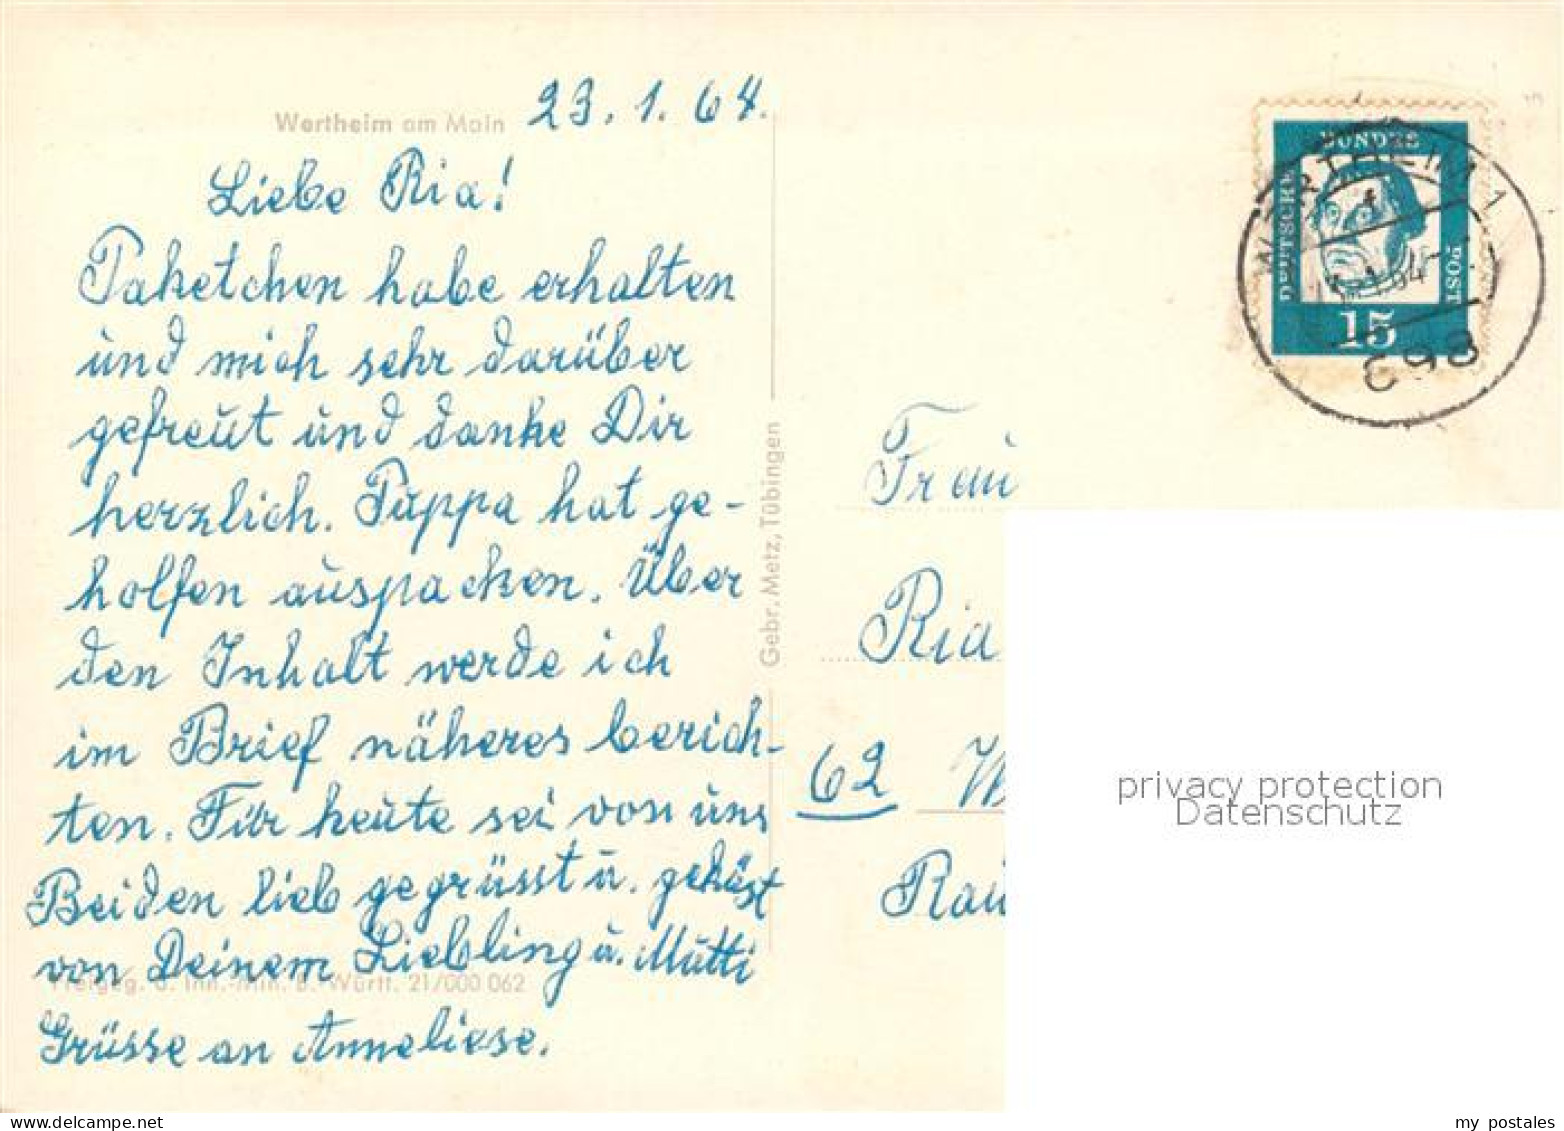 Wertheim am Main
23.1.64.
Liebe Ria!
Paketchen habe erhalten
und mich sehr darüber
gefreut und danke Dir
herzlich. Pappa hat ge-
holfen auspacken. Über
den Inhalt werde ich
im Brief näheres berich-
ten. Für heute sei von uns
Beiden lieb gegrüsst u. geküsst
von Deinem Liebling u. Mutti
Freigeg. d. Inn.-Min. B.-Württ. 21/000 062
Grüsse an Anneliese.
Gebr. Metz, Tübingen
DEUTSCHE
BUNDES
POST
15
WERTHEIM 1
698
Frau
Ria
62 W
Rau
privacy protection
Datenschutz
my postales